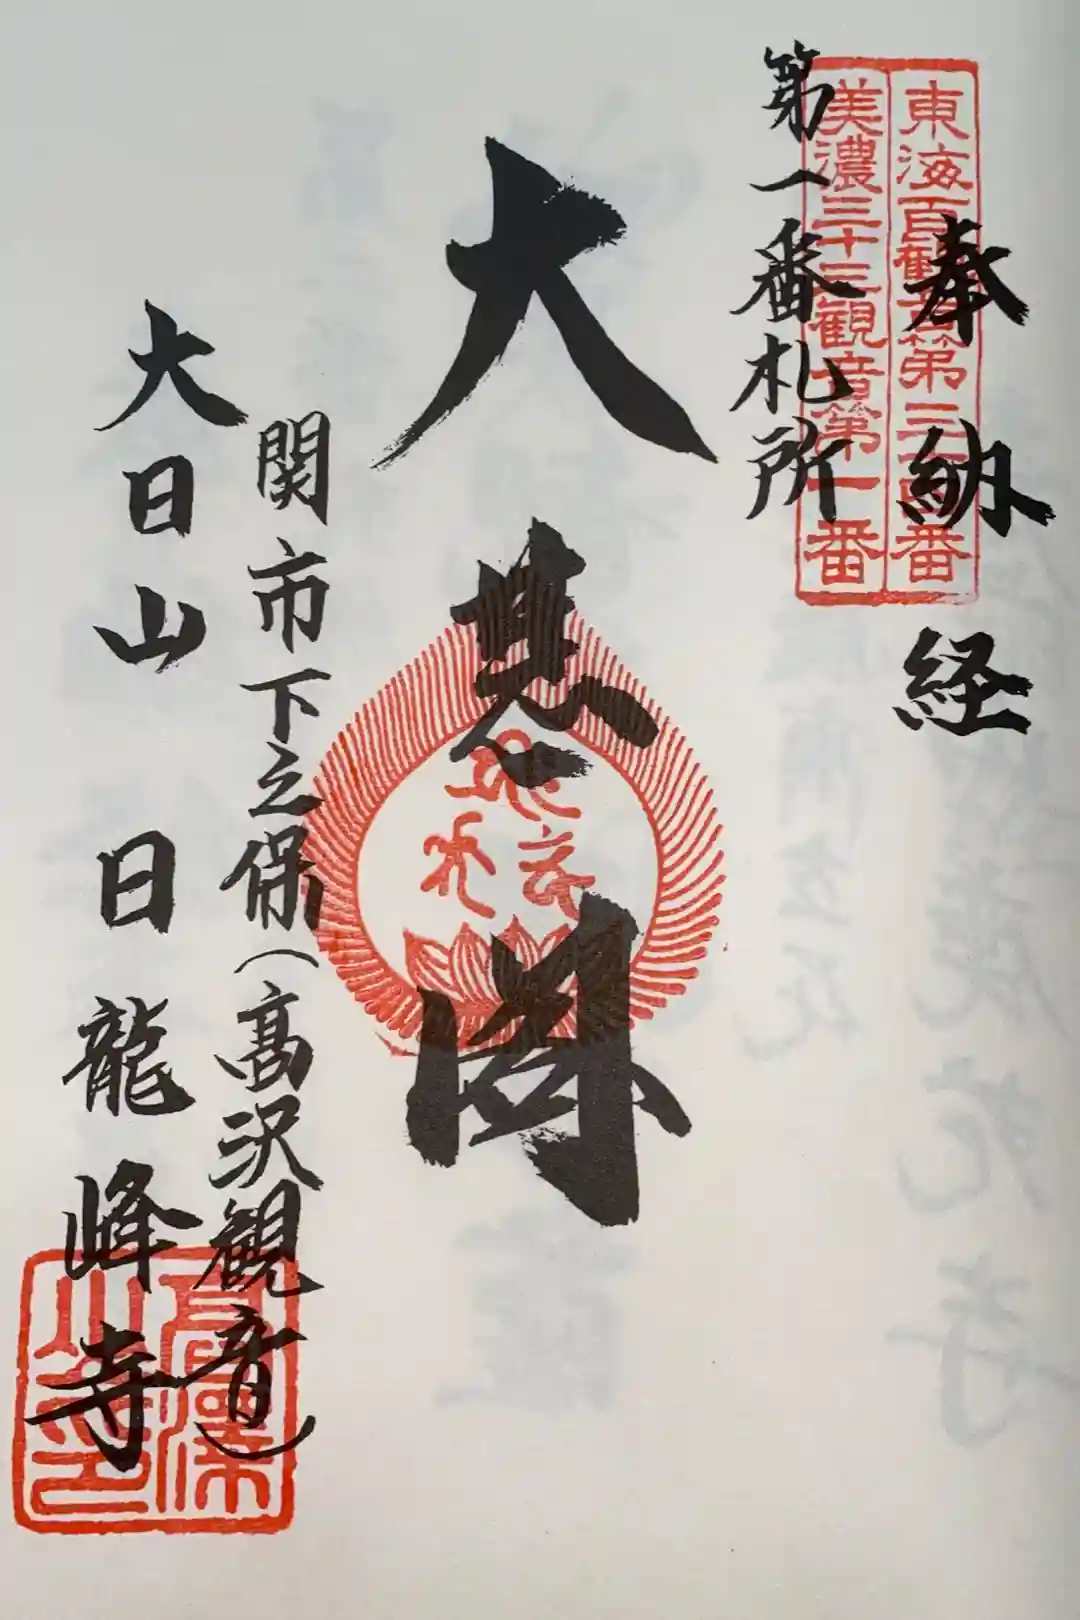 東海百観音第三四番
美濃三十三観音第一番
奉納経
第一番札所
大悲閣
関市下之保(高沢観音)
大日山 日龍峰寺
高澤山印